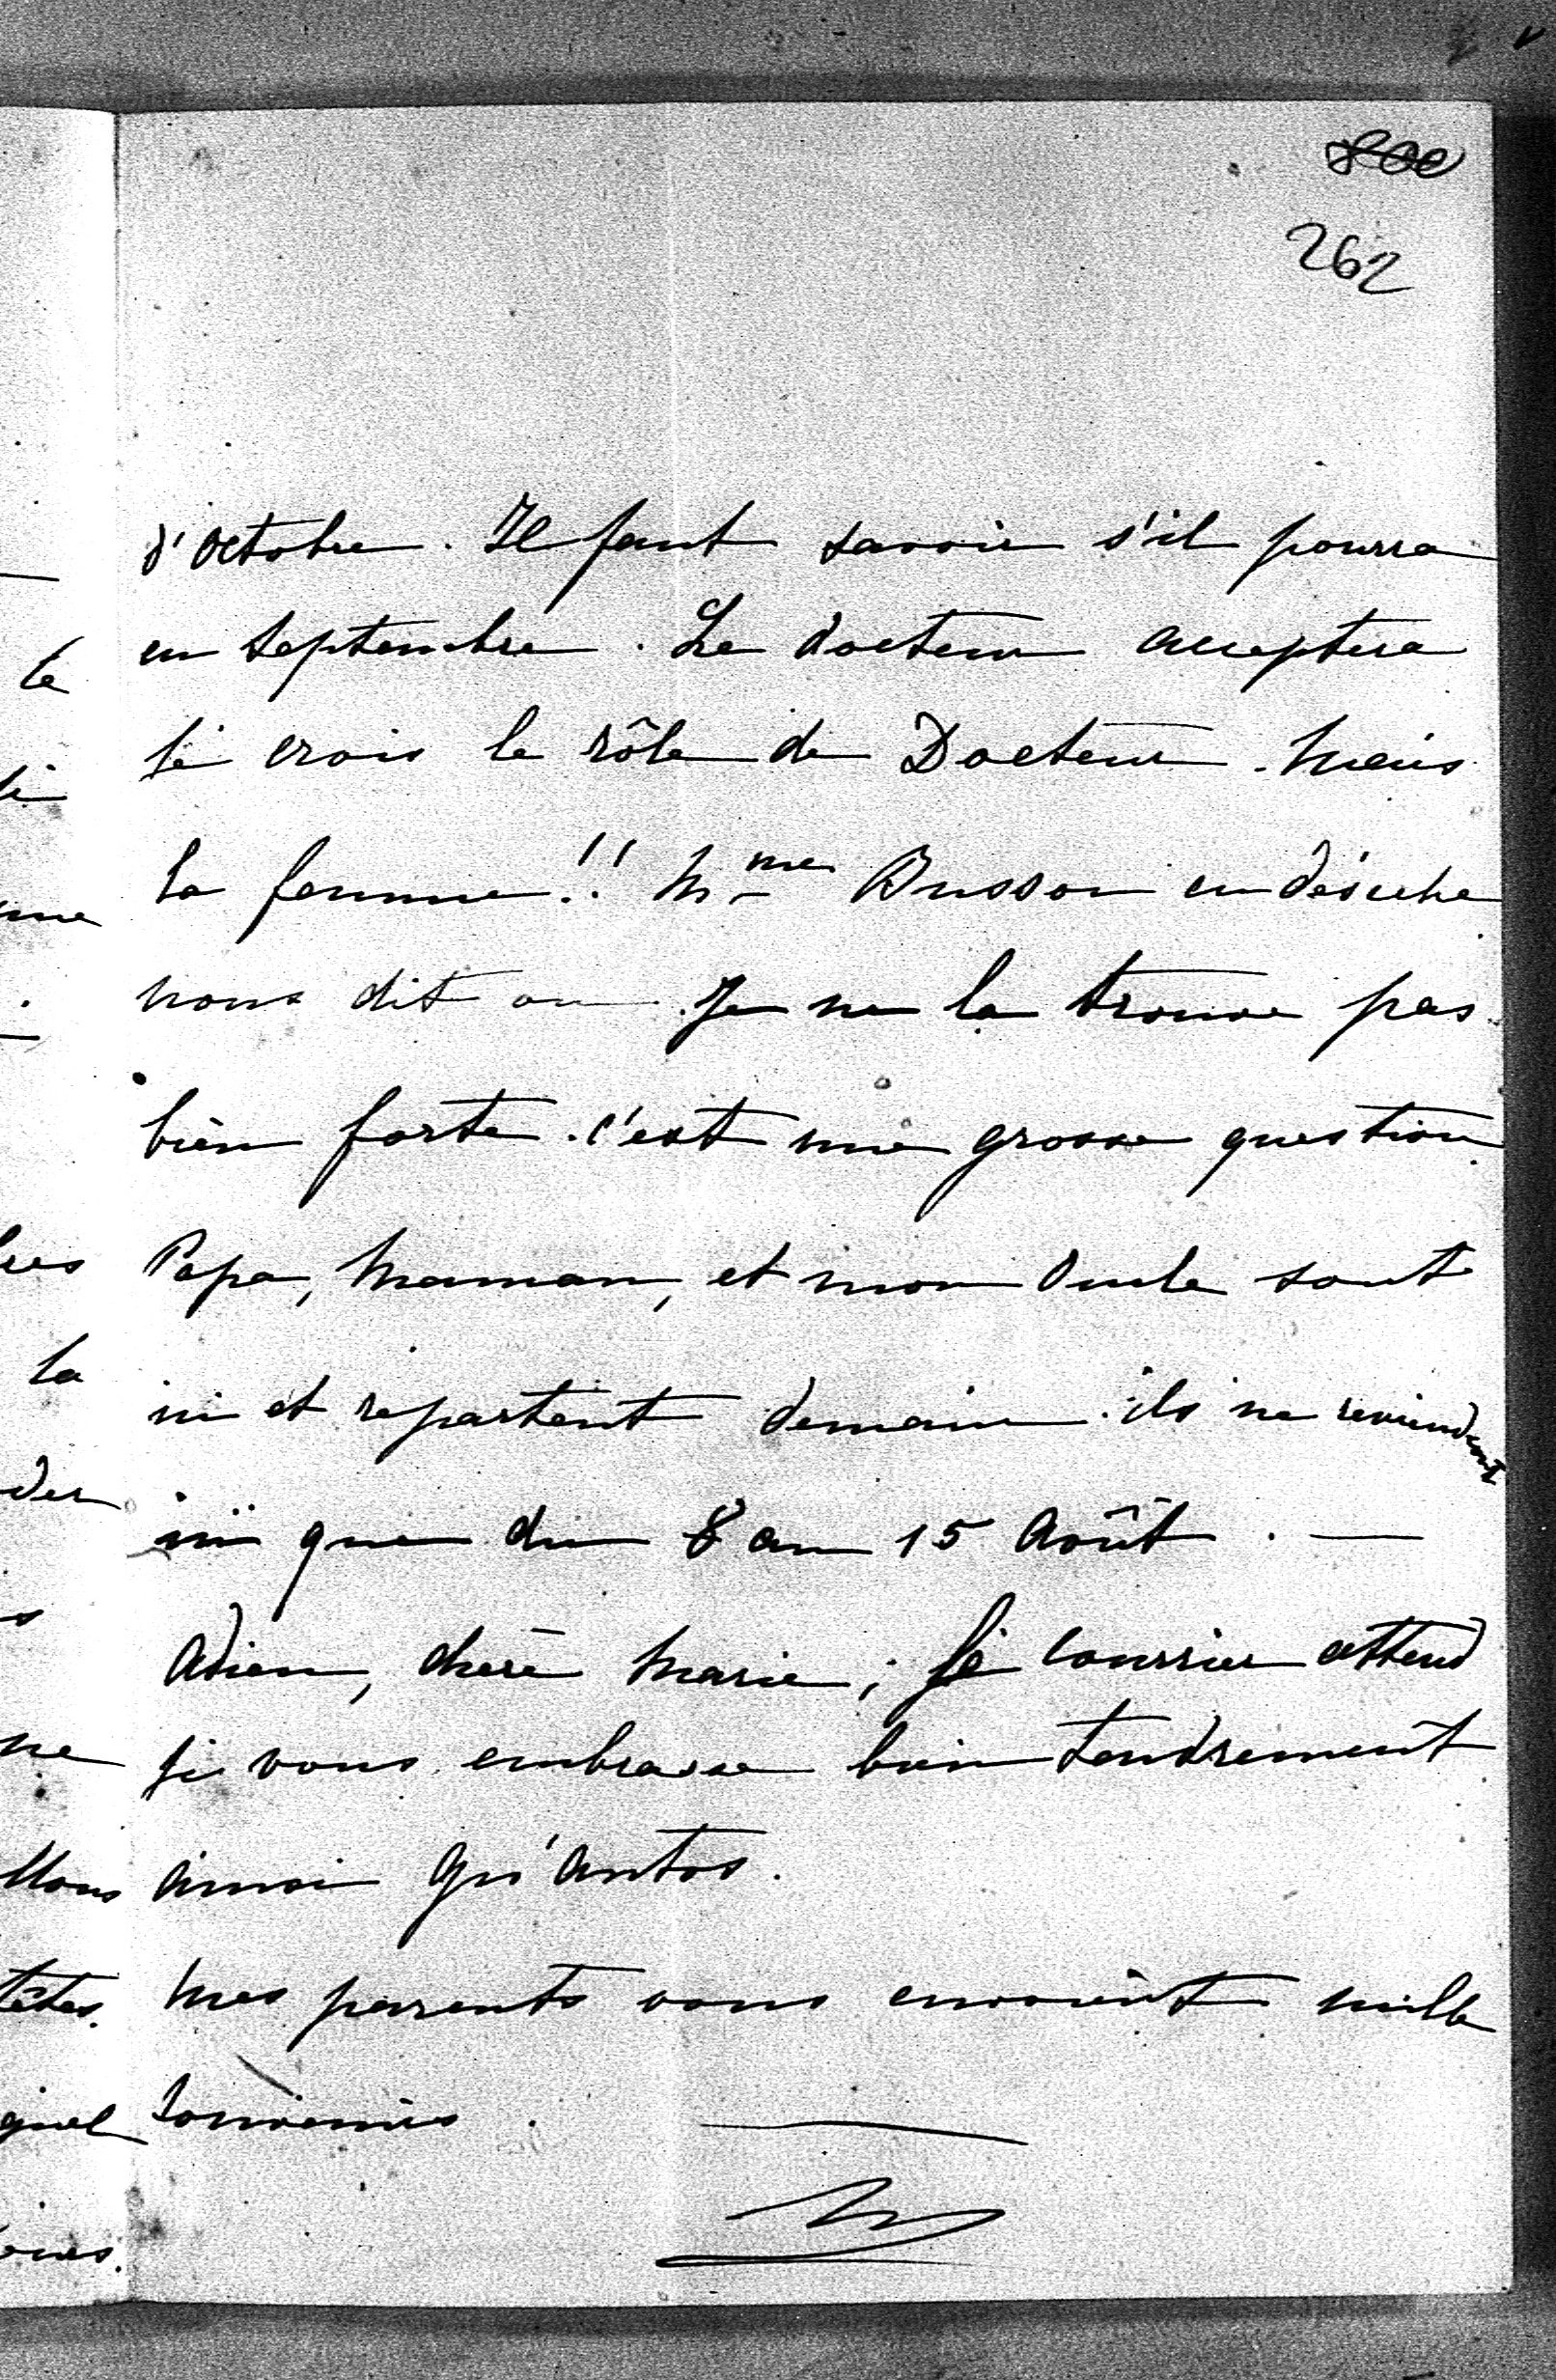 262
d'octobre. Il faut savoir s'il pourra
en septembre. Le docteur acceptera
je crois le rôle de Docteur. Mais
la femme!! Mme Busson en désire
nous dit on. Je ne la trouve pas
bien forte. c'est une grosse question
Papa, Maman, et mon Oncle sont
ici et repartent demain. ils ne reviendront
ici que du 8 au 15 Août. —
Adieu, chère Marie; le courrier attend
je vous embrasse bien tendrement
ainsi qu'Antos.
Mes parents vous envoient mille
souvenirs.
M